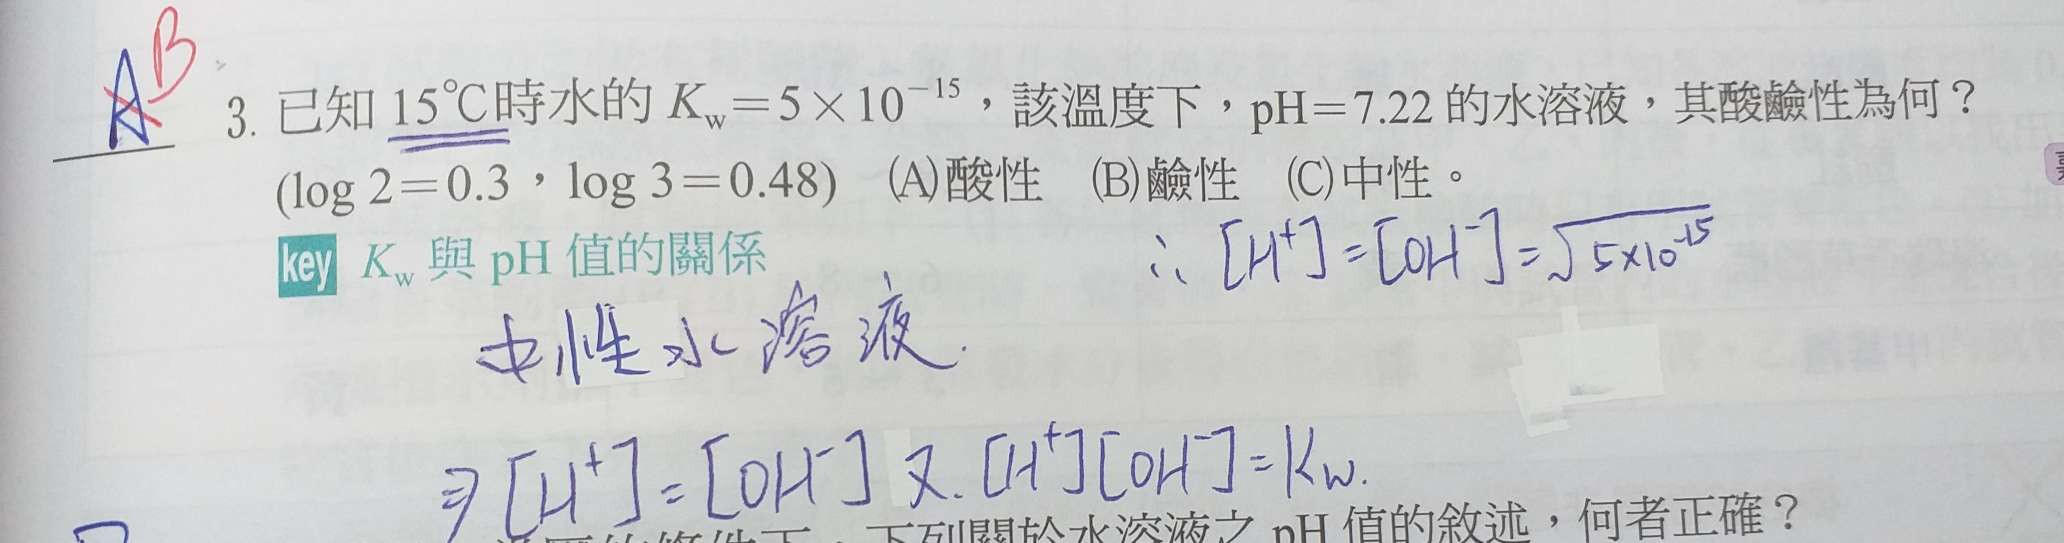 AB
3. 已知 15℃時水的 Kw＝5×10⁻¹⁵，該溫度下，pH＝7.22 的水溶液，其酸鹼性為何？
(log 2＝0.3，log 3＝0.48) (A)酸性 (B)鹼性 (C)中性。
key Kw 與 pH 值的關係
∴ [H⁺] = [OH⁻] = √5×10⁻¹⁵
中性水溶液.
⇒ [H⁺] = [OH⁻] 又. [H⁺][OH⁻] = Kw.
的條件下，下列關於水溶液之 pH 值的敘述，何者正確？